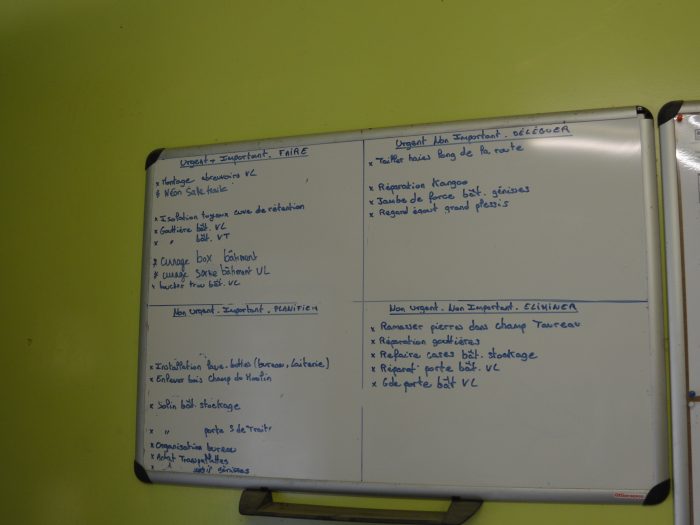 Urgent + Important. FAIRE
x Montage abreuvoirs VL
x Néon Salle traite
x Isolation tuyaux cuve de rétention
x Gouttière bât. VL
x " bât. VT
x Curage box bâtiment
x curage sortie bâtiment VL
x boucher trou bât. VL
Urgent Non Important. DÉLÉGUER
x Tailler haies long de la route
x Réparation Kangoo
x Jambe de force bât. génisses
x Regard égout grand plessis
Non Urgent. Important. PLANIFIER
x Installation lave-bottes (bureau, laiterie)
x Enlever bois Champ du Moulin
x bât. stockage
x " porte S de Traite
x Organisation bureau
x Achat Transpalettes
x " génisses
Non Urgent. Non Important. ELIMINER
x Ramasser pierres dans champ Taureau
x Réparation gouttières
x Refaire cases bât. stockage
x Réparat° porte bât. VL
x Gde porte bât VL